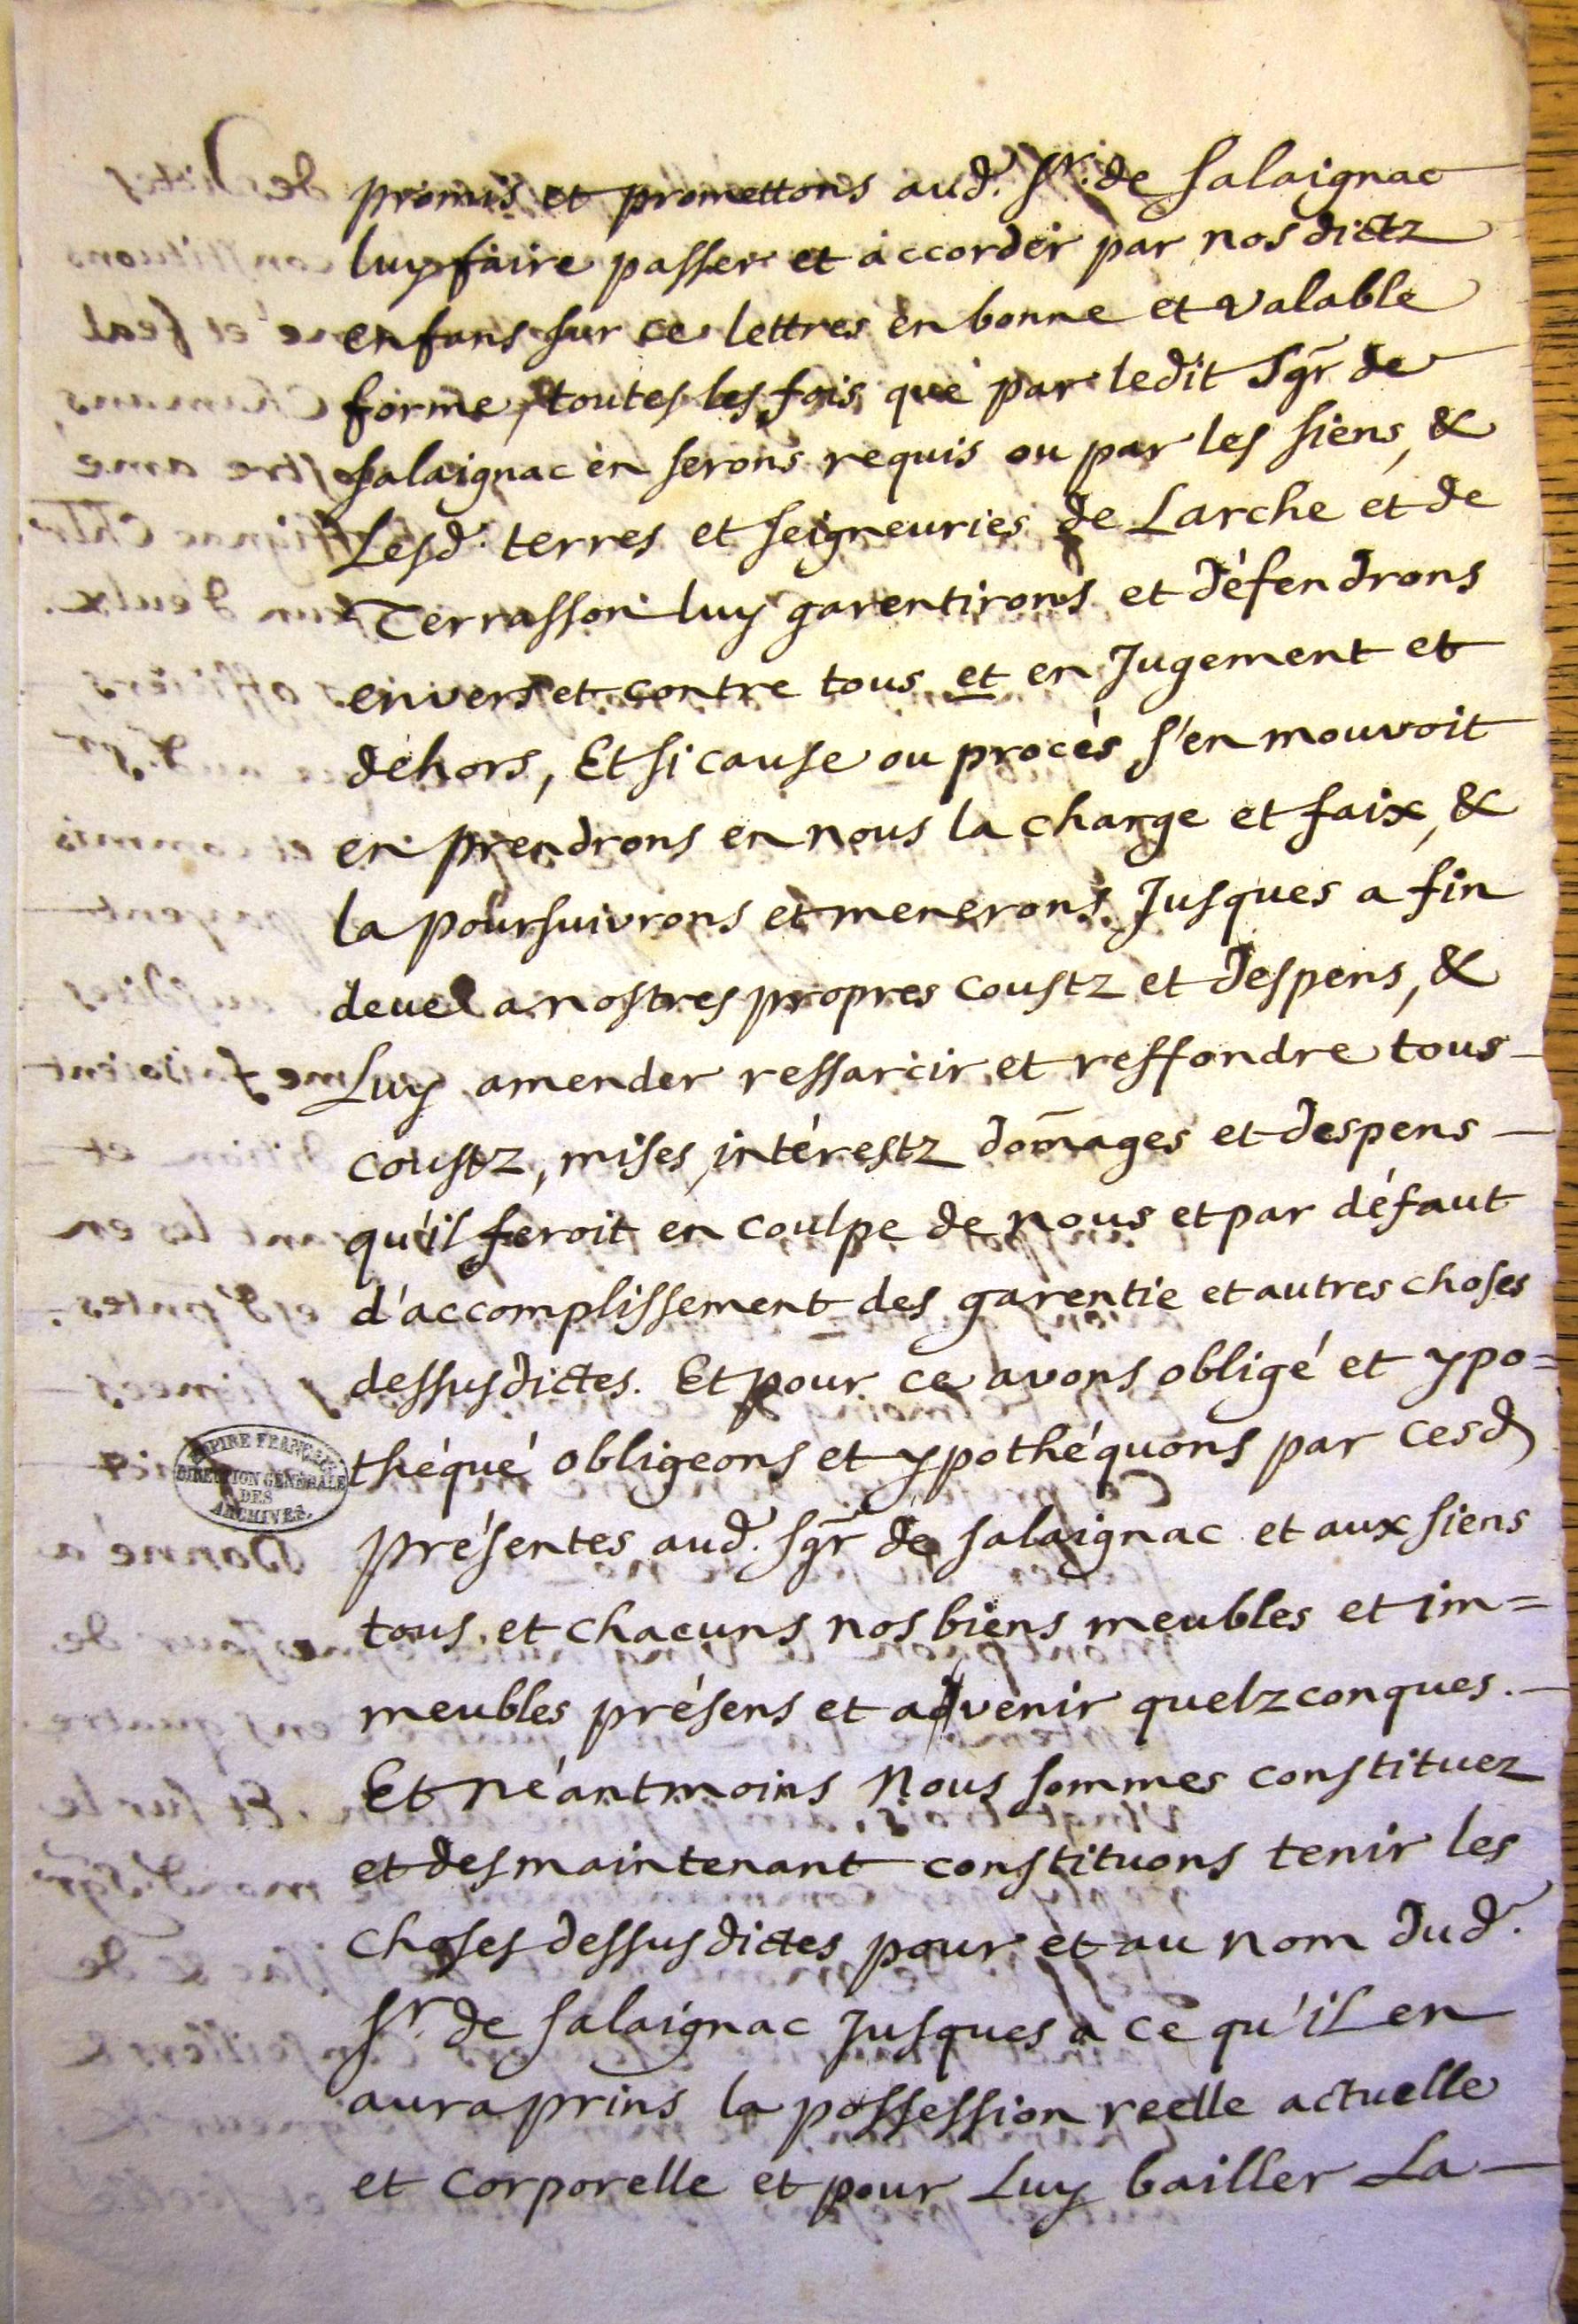 promis et promettons aud. Sr. de Salaignac
luy faire passer et accorder par nos dictz
enfans sur ce lettres en bonne et valable
forme, toutes les fois que par ledit Sgr de
Salaignac en serons requis ou par les siens, &
Lesd. terres et seigneuries de Larche et de
Terrasson luy garentirons et défendrons
envers et contre tous et en Jugement et
déhors, Et si cause ou procès s'en mouvoit
en prendrons en nous la charge et faix, &
la poursuivrons et menerons Jusques a fin
deue a nostres propres coustz et despens, &
Luy amender ressarcir et reffondre tous
coustz, mises, intérestz dom̄ages et despens
qu'il feroit en coulpe de nous et par défaut
d'accomplissement des garentie et autres choses
dessusdictes. Et pour ce avons obligé et ypo=
théqué obligeons et ypothéquons par cesd
présentes aud. Sgr de Salaignac et aux siens
tous et chacuns nos biens meubles et im=
meubles présens et advenir quelzconques.
Et néantmoins Nous sommes constituez
et des maintenant constituons tenir les
choses dessusdictes pour et au nom dud.
Sr. de Salaignac Jusques a ce qu'il en
aura prins la possession reelle actuelle
et corporelle et pour Luy bailler La
EMPIRE FRANÇAIS
DIRECTION GÉNÉRALE
DES
ARCHIVES.